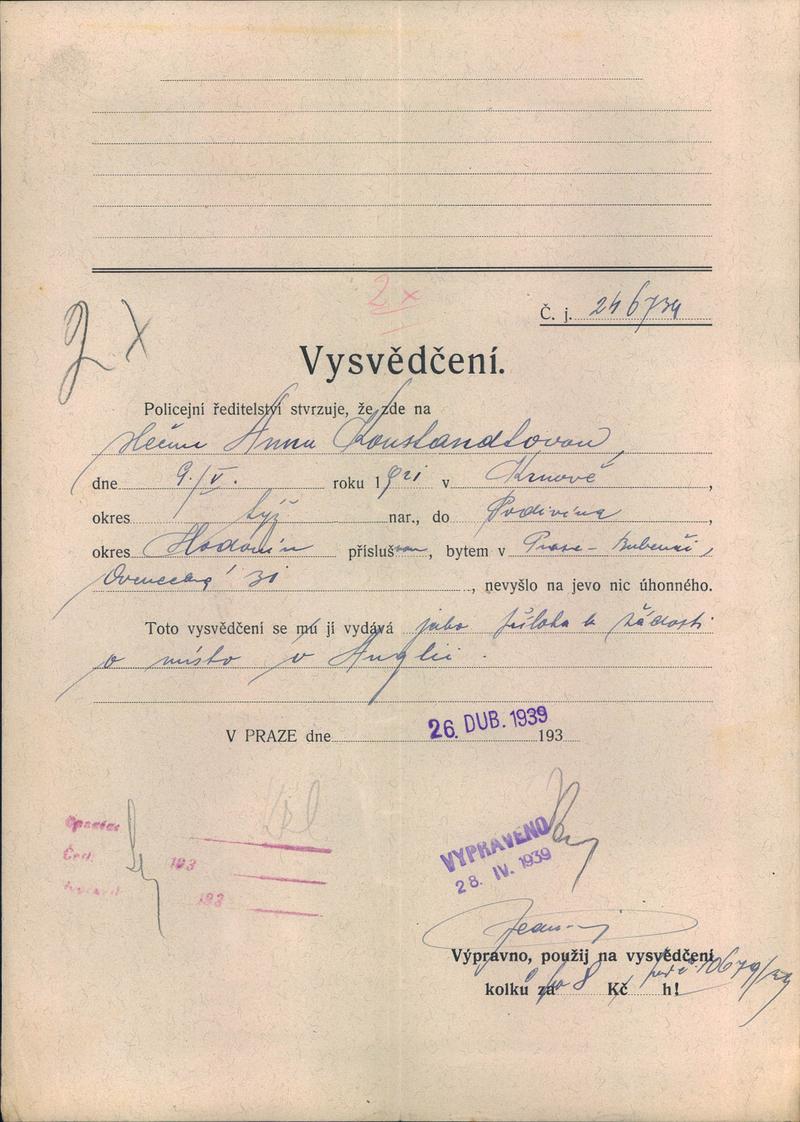 2 x
2 x
Č. j. 246734
Vysvědčení.
Policejní ředitelství stvrzuje, že zde na
Annu Konstandtovou,
dne 9./V. roku 1921 v Krnově,
okres týž nar., do Podivína,
okres Hodonín přísluš, bytem v Praze-Bubenči,
Ovenecká 31, nevyšlo na jevo nic úhonného.
Toto vysvědčení se mu jí vydává jako příloha k žádosti
o místo v Anglii.
V PRAZE dne 26. DUB. 1939 193
193
193
VYPRAVENO
28. IV. 1939
Výpravno, použij na vysvědčení
kolků za po 8 Kč h!